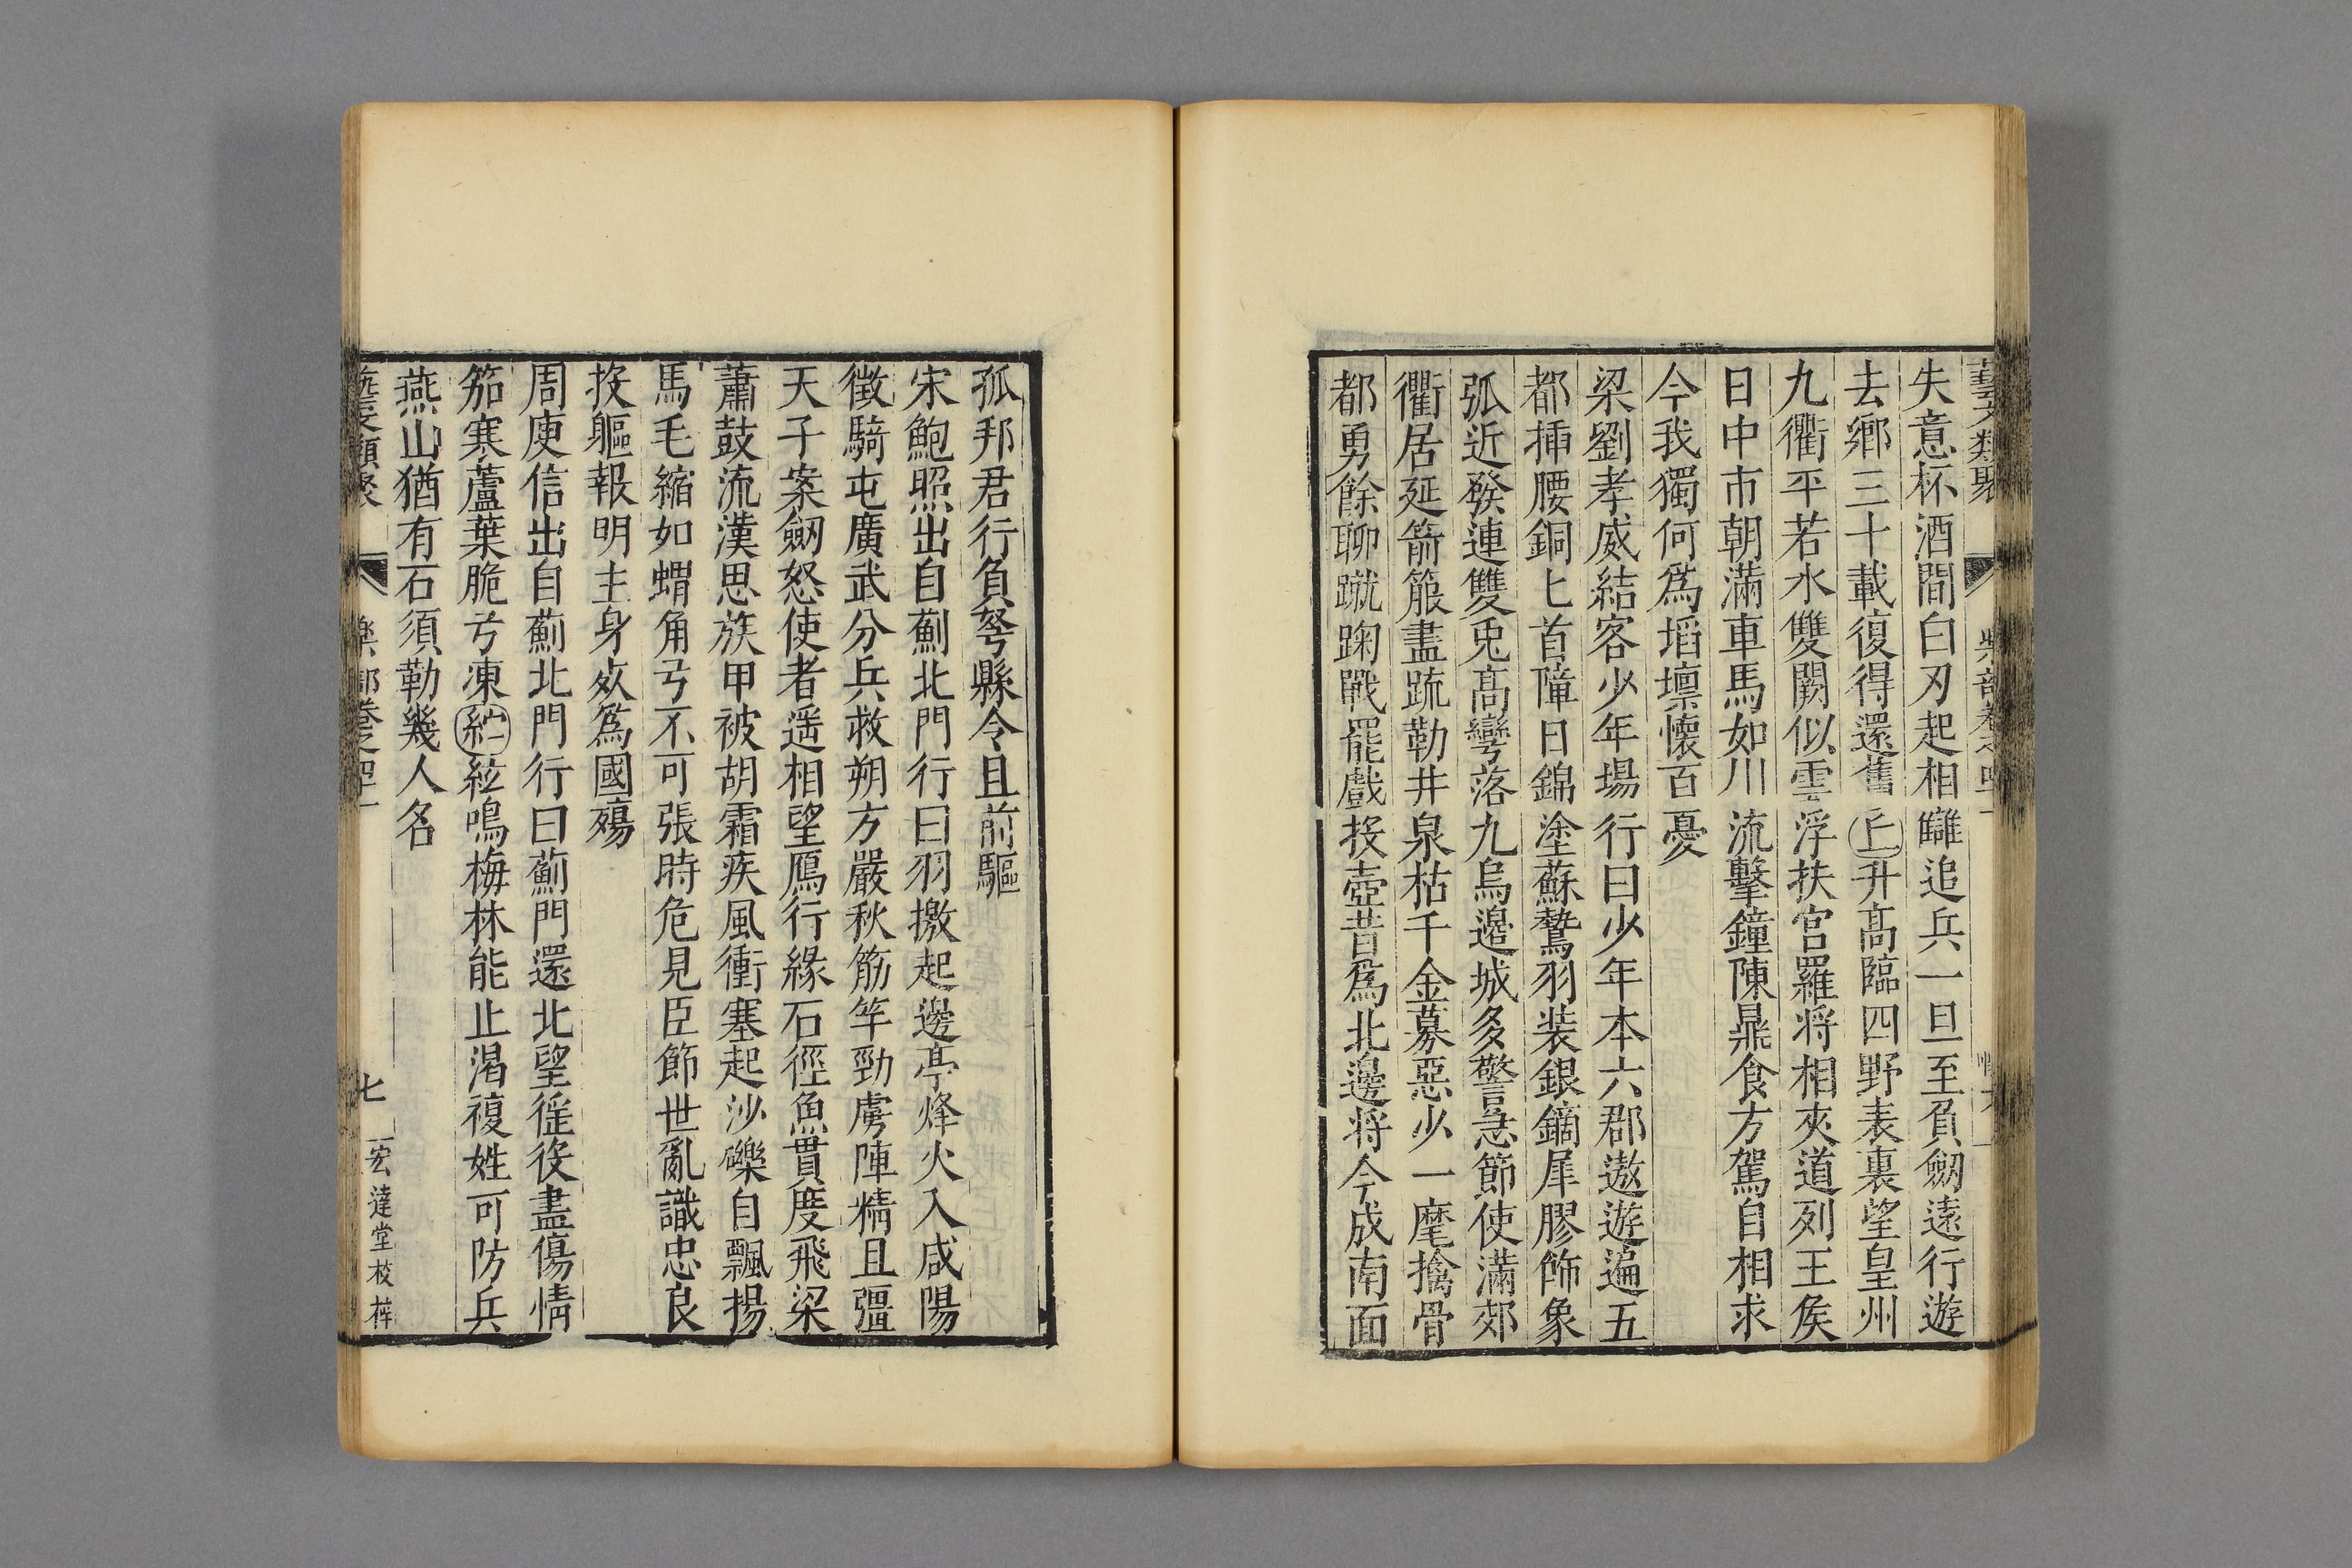 藝文類聚
失意杯酒間白刃起相讎追兵一旦至負劒遠行遊
去鄉三十載復得還舊丘升高臨四野表裏望皇州
九衢平若水雙闕似雲浮扶宮羅將相夾道列王矦
日中市朝滿車馬如川流擊鐘陳鼎食方駕自相求
今我獨何爲埳壈懷百憂
梁劉孝威結客少年場行曰少年本六郡遨遊遍五
都揷腰銅匕首障日錦塗蘇鷙羽裝銀鏑犀膠飾象
弧近發連雙兎高彎落九烏邊城多警急節使滿郊
衢居延箭箙盡疏勒井泉枯千金募惡少一麾擒骨
都勇餘聊蹴踘戰罷戲投壺昔爲北邊將今成南面
孤邦君行負弩縣令且前驅
宋鮑照出自薊北門行曰羽檄起邊亭烽火入咸陽
徵騎屯廣武分兵救朔方嚴秋筋竿勁虜陣精且彊
天子案劒怒使者遥相望鴈行緣石徑魚貫度飛梁
蕭鼓流漢思族甲被胡霜疾風衝塞起沙礫自飄揚
馬毛縮如蝟角弓不可張時危見臣節世亂識忠良
投軀報明主身歿爲國殤
周庾信出自薊北門行曰薊門還北望從役盡傷情
笳寒蘆葉脆弓凍紵絃鳴梅林能止渴複姓可防兵
燕山猶有石須勒幾人名
七
宏達堂校梓